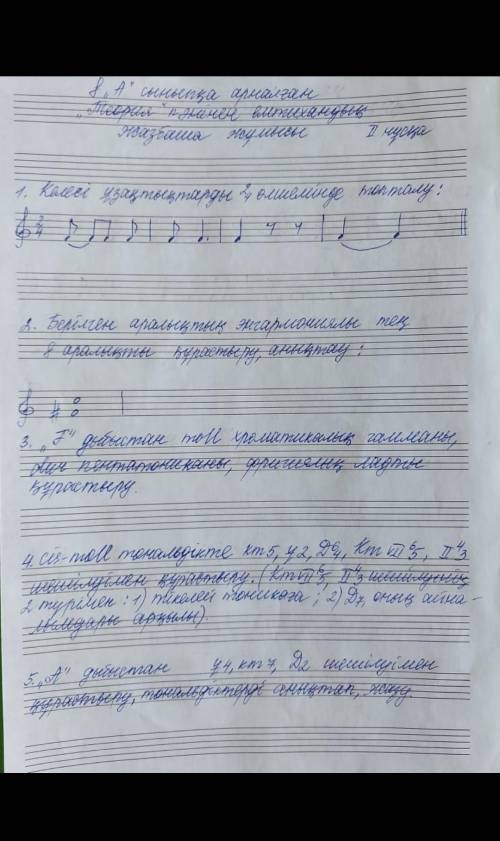 8 „А" сыныпқа арналған
„Теория" пәнінен емтихандық
жазбаша жұмысы II нұсқа
1. Келесі ұзақтықтарды 2/4 өлшемінде топтау:
2. Берілген аралықтың энгармониялы тең
8 аралықты құрастыру, анықтау:
3. „F" дыбыстан moll хроматикалық гамманы,
пентатониканы, фригиялық ладты
құрастыру.
4. cis-moll тональдікте кт5, ұ2, D6/4, Кт VII6/5, II4/3
шешілуімен құрастыру. (Кт VII6/5, II4/3 шешілуінің
2 түрімен: 1) тікелей тоникаға; 2) D7, оның айна-
лымдары арқылы).
5. „А" дыбыстан ұ4, кт7, D2 шешілуімен
құрастыру, тональдіктерді анықтап, жазу.